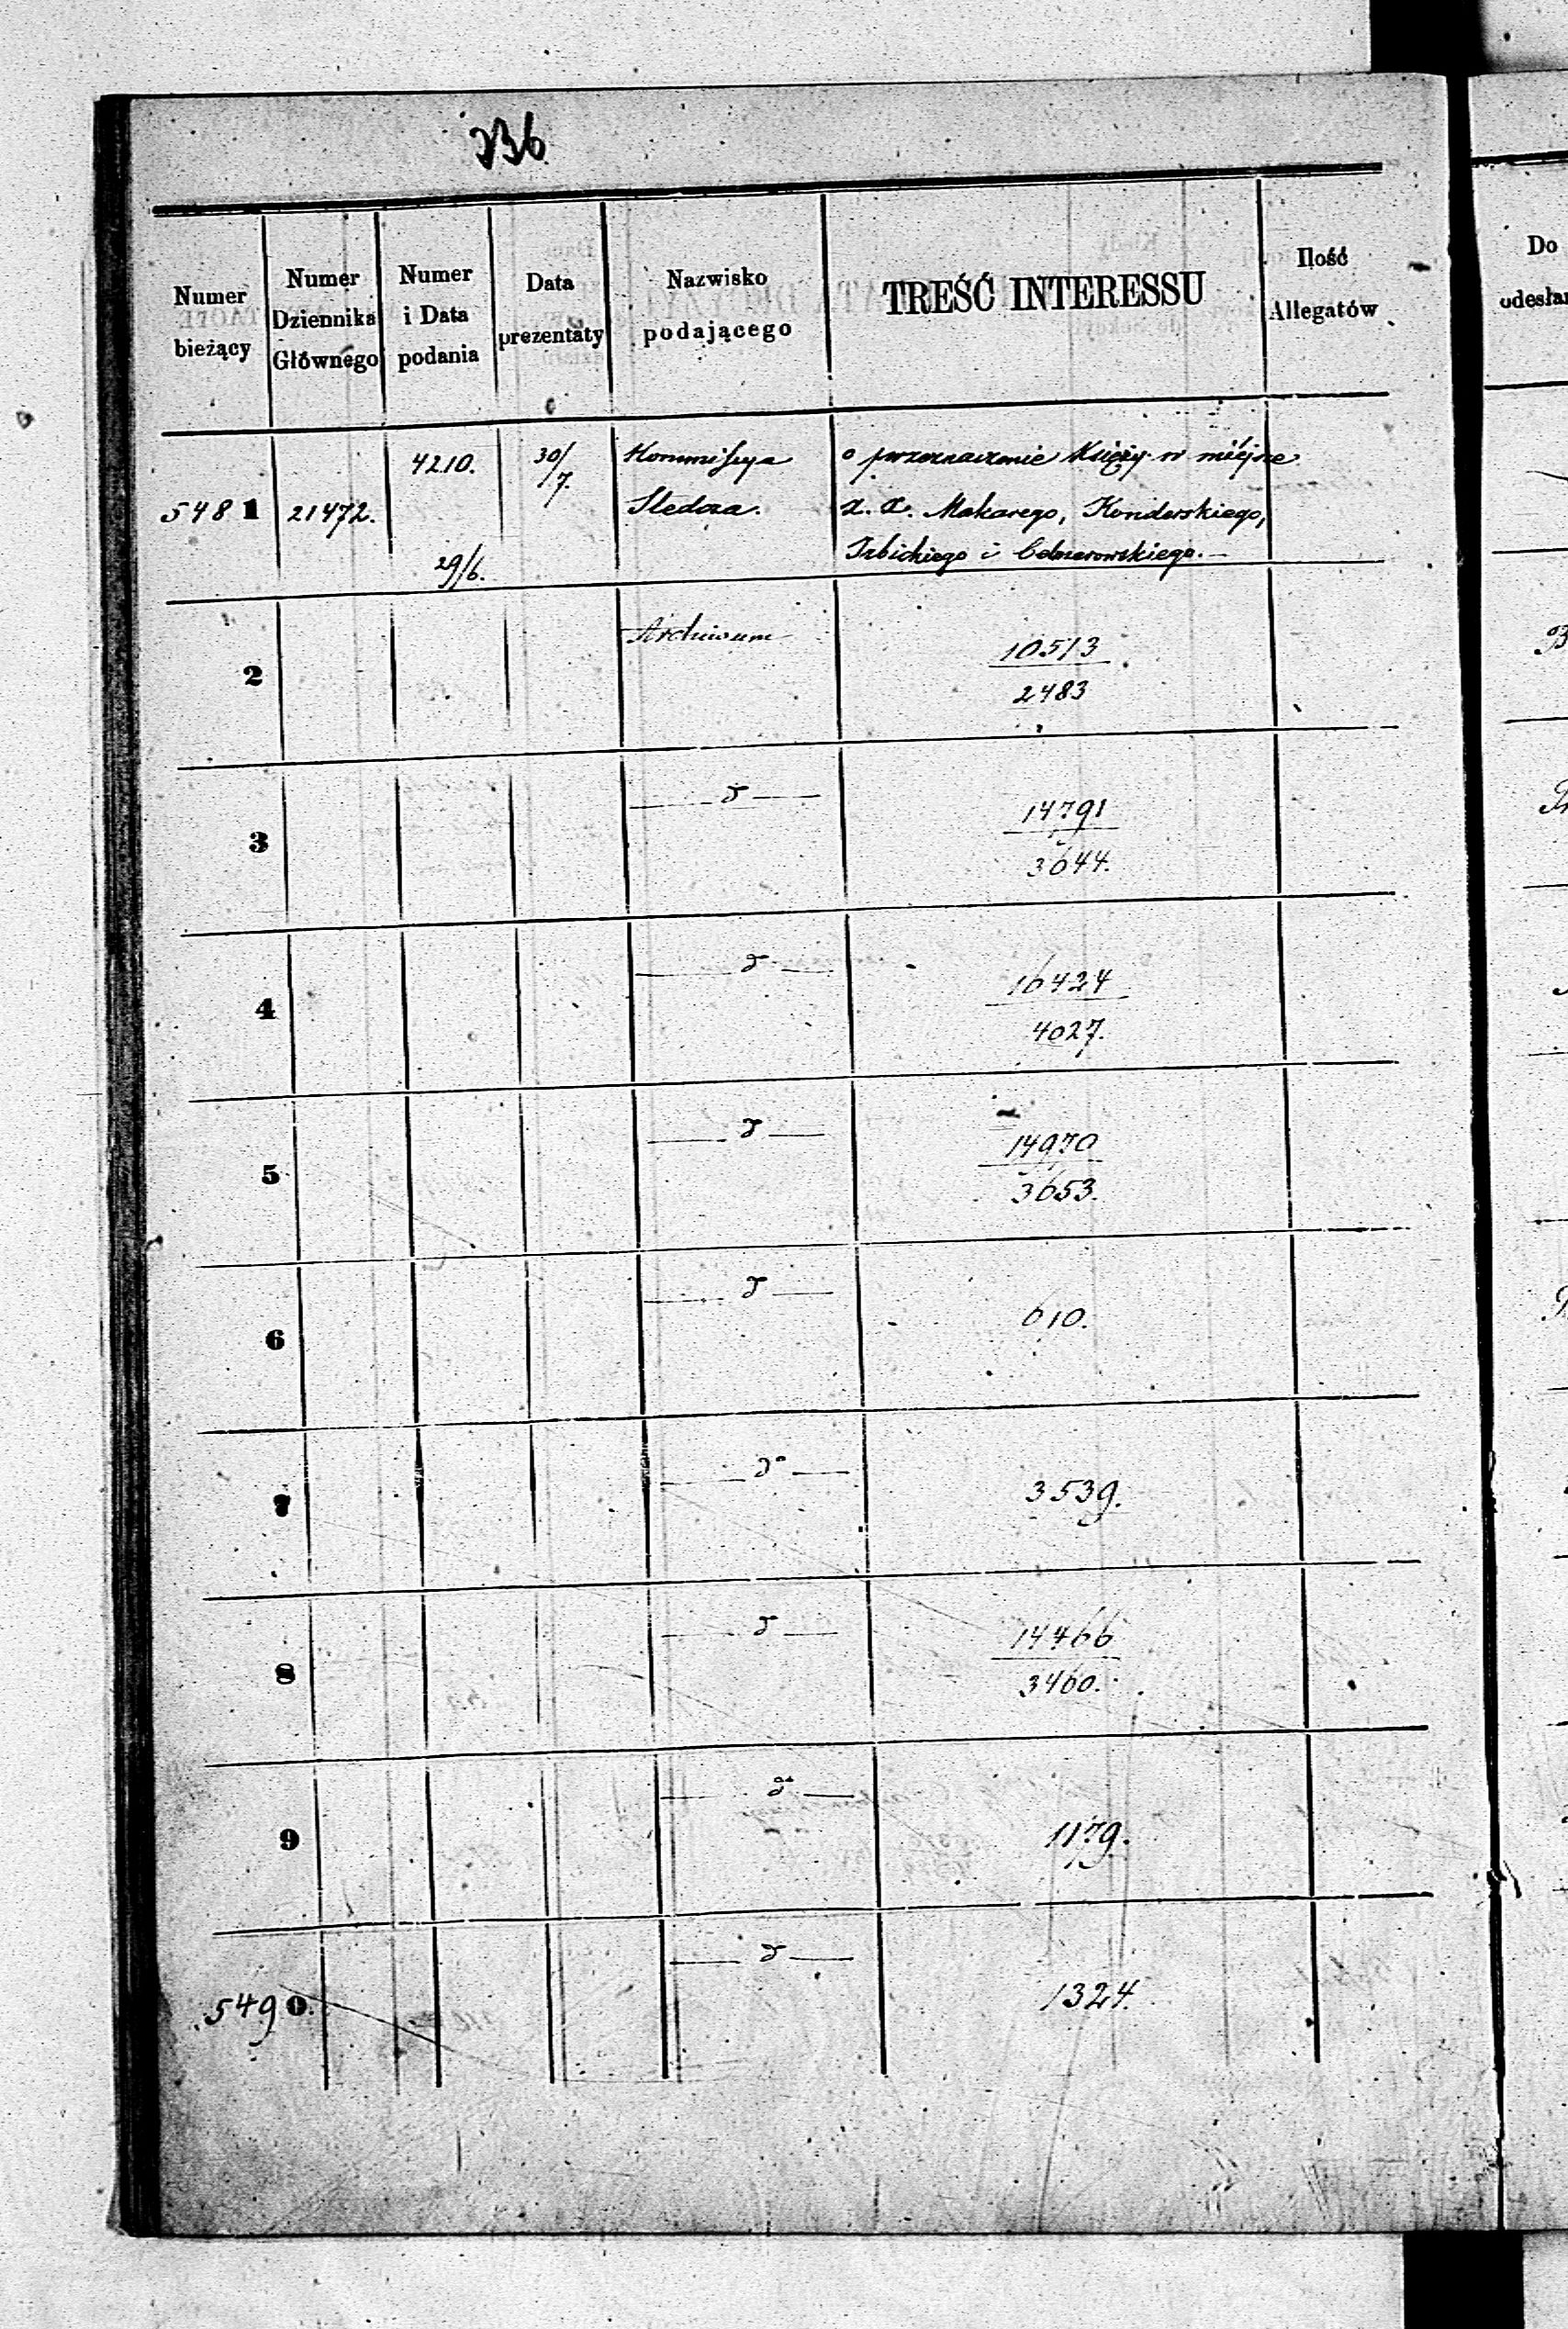 336
Numer bieżący
Numer Dziennika Głównego
Numer i Data podania
Data prezentaty
Nazwisko podającego
TREŚĆ INTERESSU
Ilość Allegatów
Do
5481 21472. 4210. 29/6. 30/7. Kommissya Sledcza. o przeznaczenie Księży w miejsce
X. X. Makarego, Konderskiego,
Izbickiego i
2 Archiwum 10513
2483
3 d 14791
3644.
4 d 16424
4027.
5 d 14970
3653.
6 d 610.
7 do 3539.
8 d 14466
3460.
9 do 1179.
5490. d 1324.